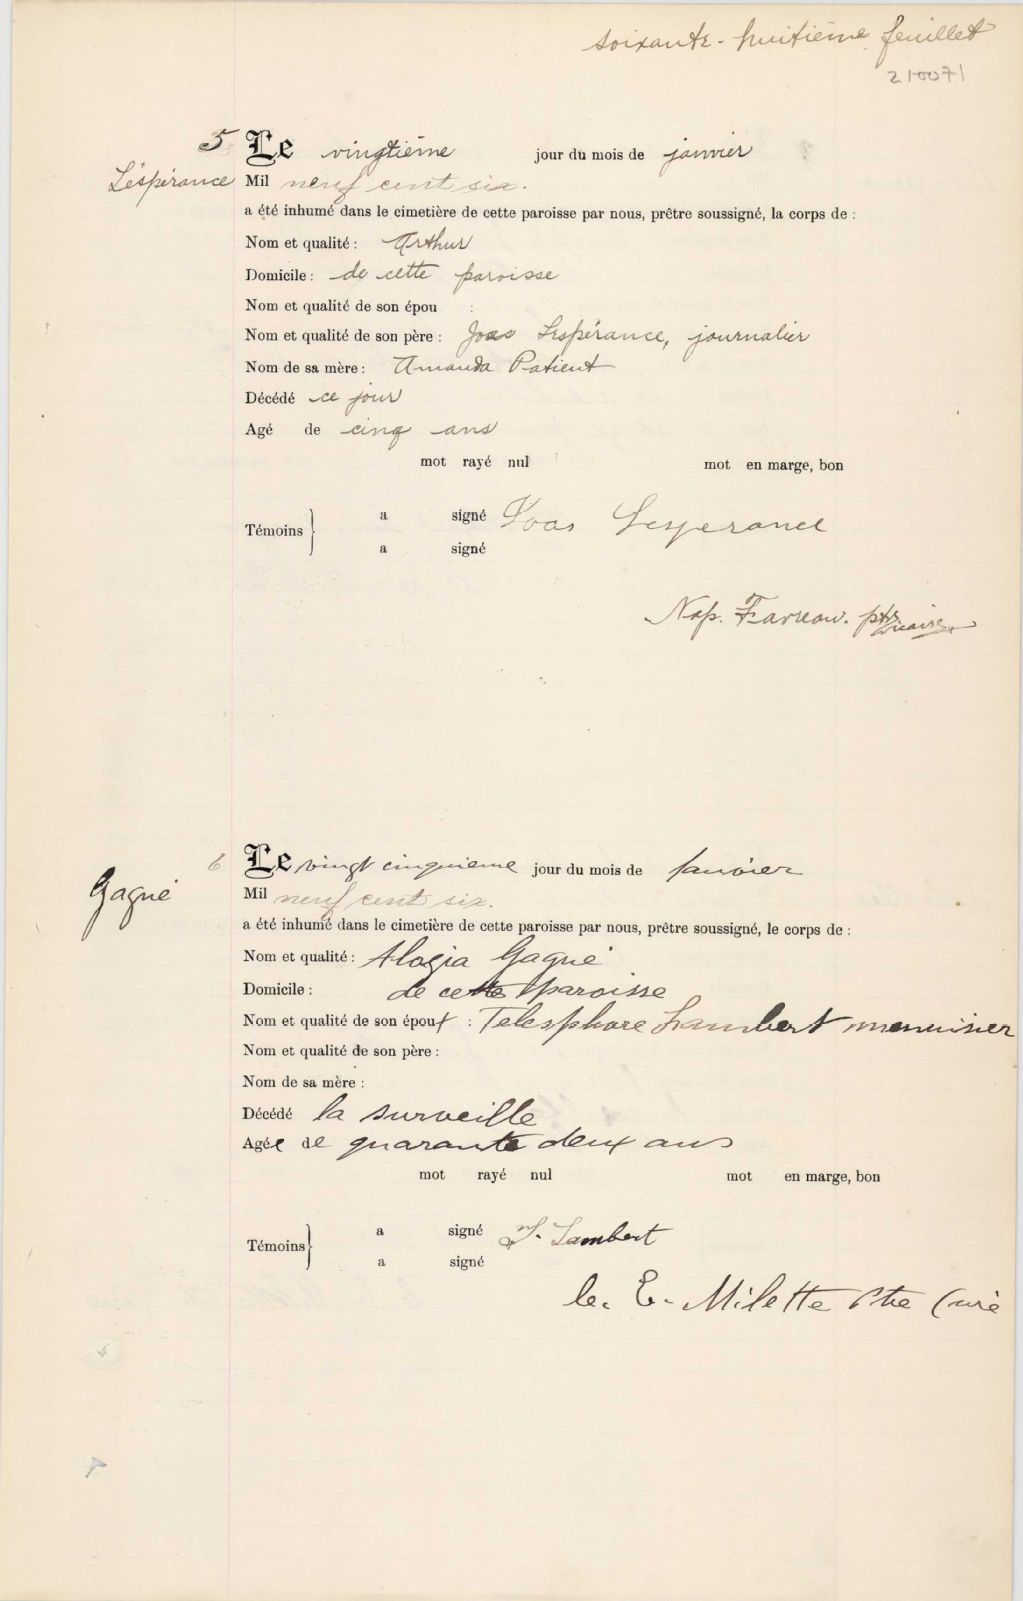 soixante-huitième feuillet
210071
5 Le vingtième jour du mois de janvier
Lespérance Mil neuf cent six.
a été inhumé dans le cimetière de cette paroisse par nous, prêtre soussigné, la corps de :
Nom et qualité : Arthur
Domicile : de cette paroisse
Nom et qualité de son épou :
Nom et qualité de son père : Joas Lespérance, journalier
Nom de sa mère : Amanda Patient
Décédé ce jour
Agé de cinq ans
mot rayé nul mot en marge, bon
a signé Joas Lesperance
Témoins
a signé
Nap. Favreau. ptr vicaire
6 Le vingt cinquieme jour du mois de Janvier
Gagné Mil neuf cent six.
a été inhumé dans le cimetière de cette paroisse par nous, prêtre soussigné, le corps de :
Nom et qualité : Alogia Gagné
Domicile : de cette paroisse
Nom et qualité de son époux : Telesphore Lambert menuisier
Nom et qualité de son père :
Nom de sa mère :
Décédé la surveille
Agée de quarante deux ans
mot rayé nul mot en marge, bon
a signé T. Lambert
Témoins
a signé
E. Milette Ptre Curé